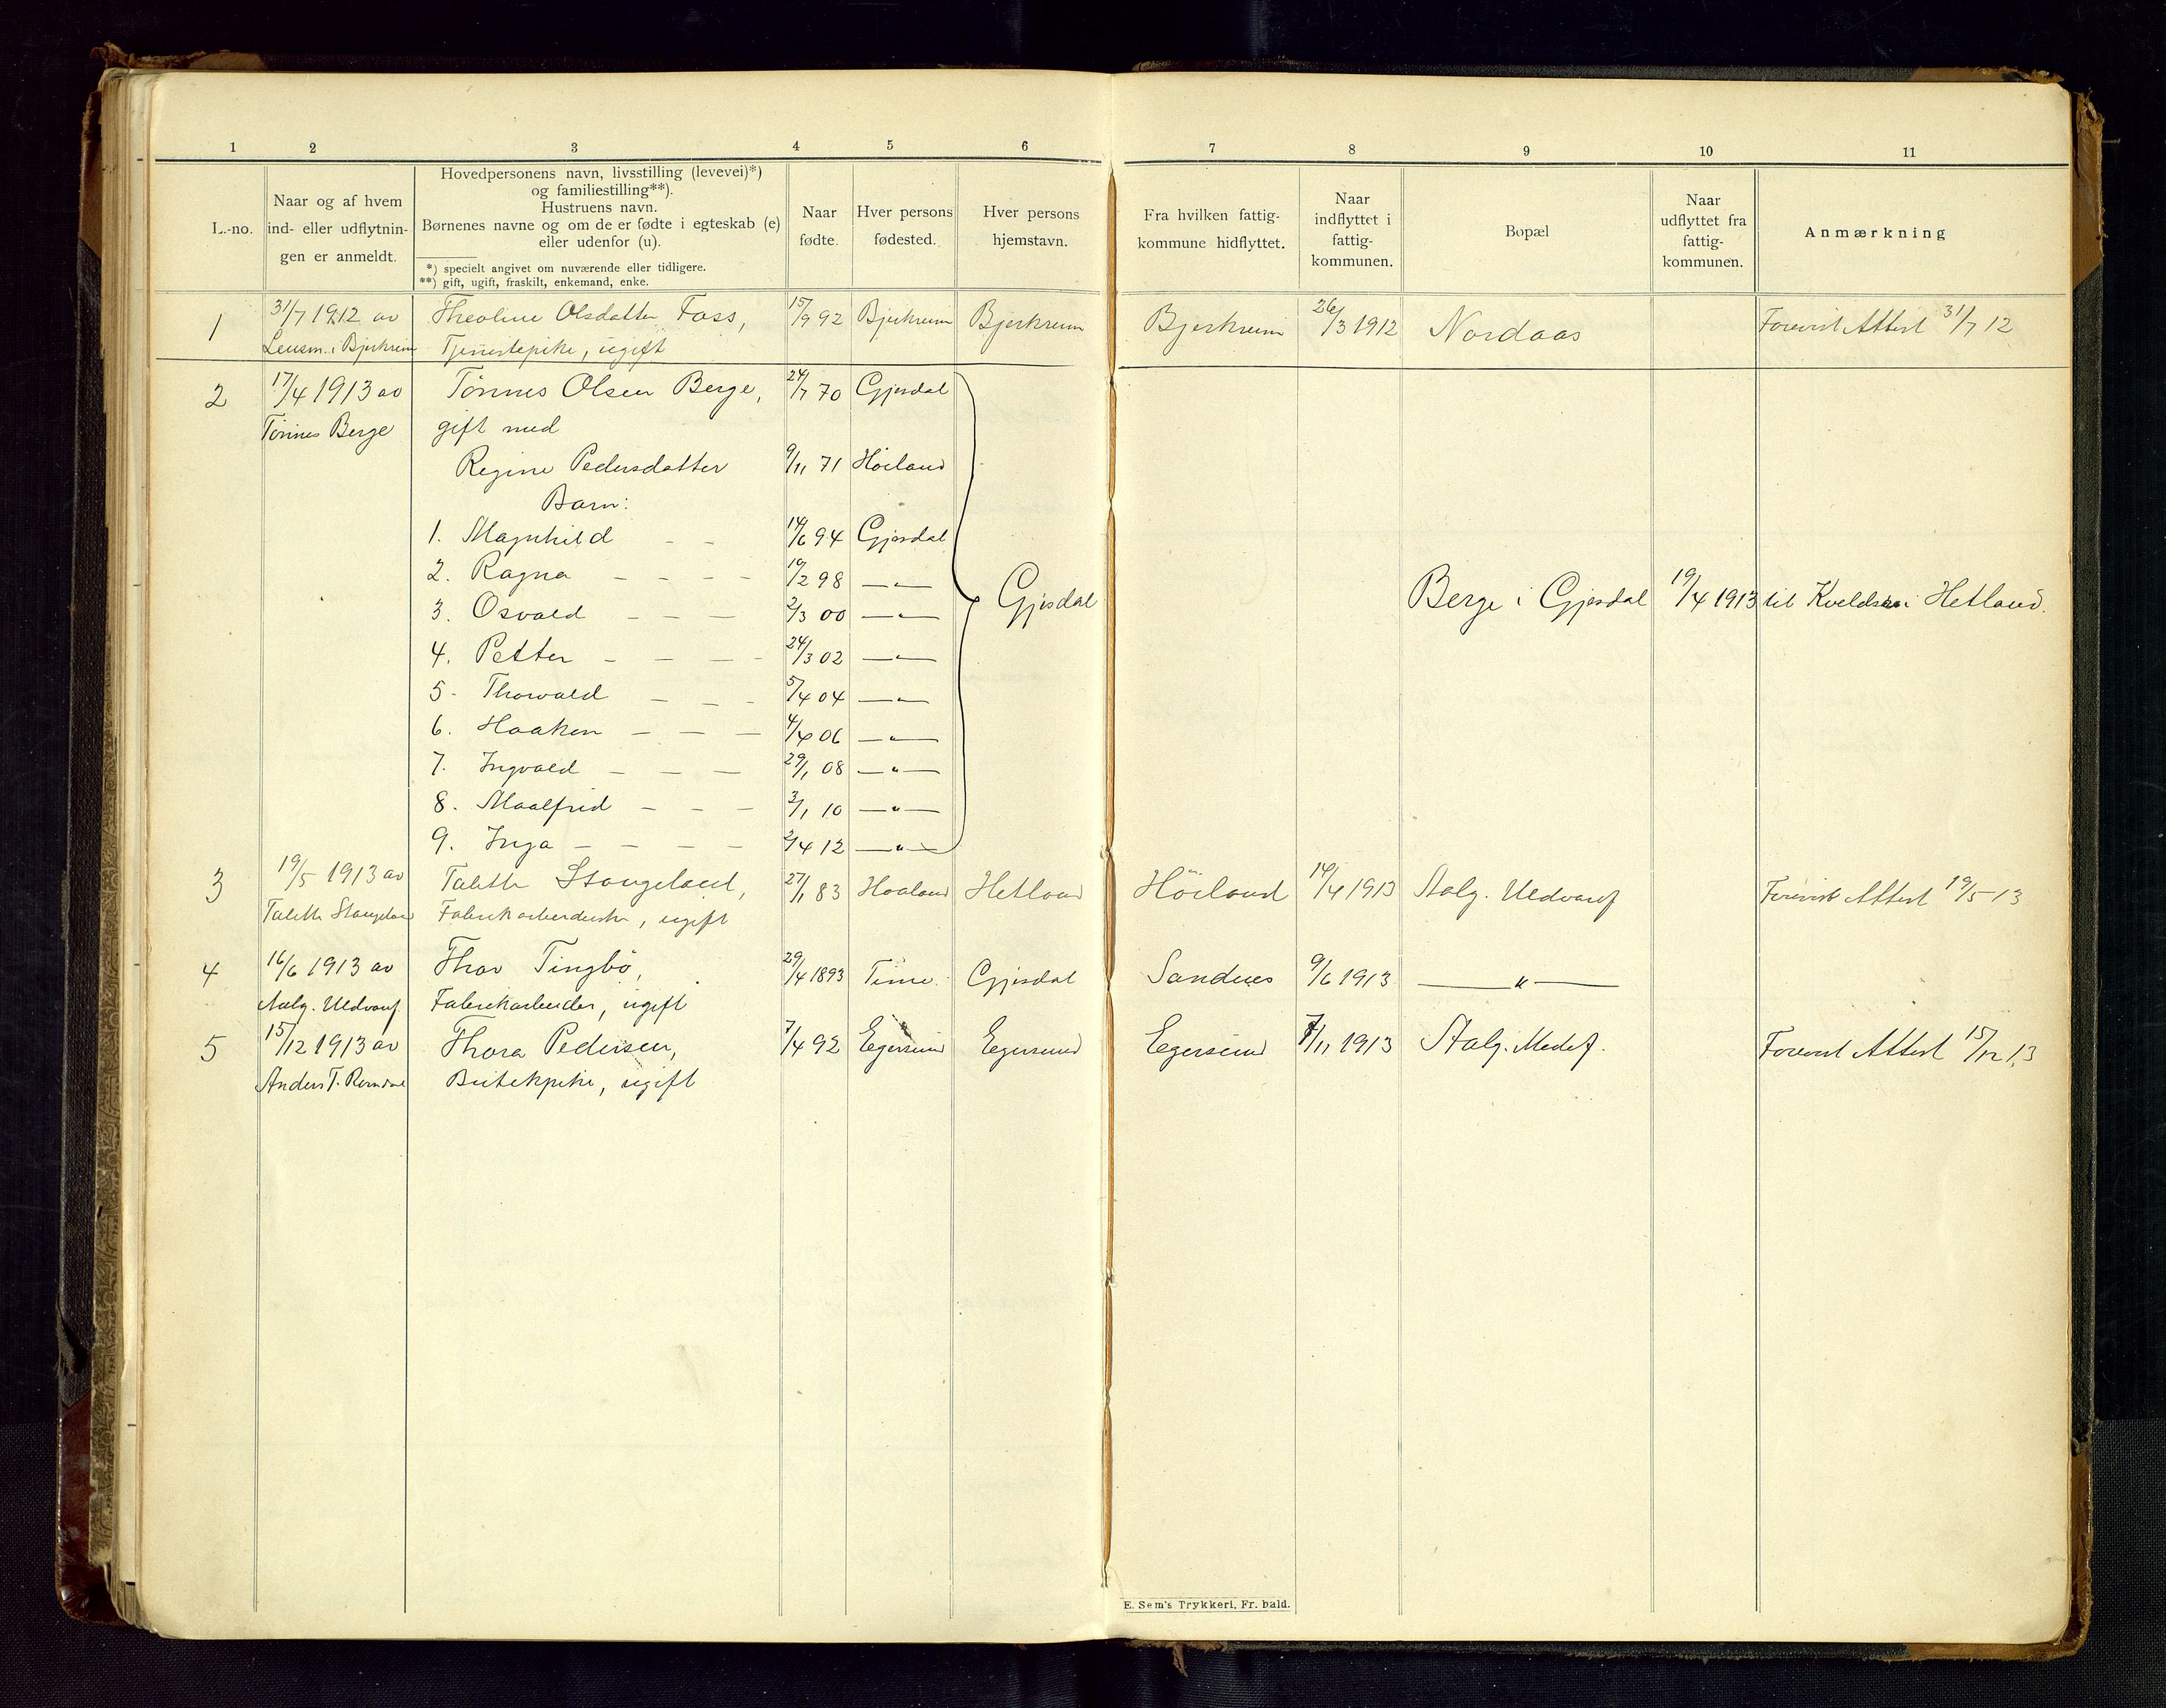 1 2 3 4 5 6 7 8 9 10 11
L.-no.
Naar og af hvem
ind- eller udflytnin-
gen er anmeldt.
Hovedpersonens navn, livsstilling (levevei)*)
og familiestilling**).
Hustruens navn.
Børnenes navne og om de er fødte i egteskab (e)
eller udenfor (u).
*) specielt angivet om nuværende eller tidligere.
**) gift, ugift, fraskilt, enkemand, enke.
Naar
fødte.
Hver persons
fødested.
Hver persons
hjemstavn.
Fra hvilken fattig-
kommune hidflyttet.
Naar
indflyttet i
fattig-
kommunen.
Bopæl
Naar
udflyttet fra
fattig-
kommunen.
Anmærkning
1 31/7 1912 av Theoline Olsdatter Foss, 15/9 92 Bjerkreim Bjerkreim Bjerkreim 26/3 1912 Nordaas Forevist Attest 31/7 12
Lensm. i Bjerkreim Tjenestepike, ugift
2 17/4 1913 av Tønnes Olsen Berge, 24/7 70 Gjesdal
Tønnes Berge gift med
Regine Pedersdatter 9/11 71 Høiland
Barn:
1. Magnhild - - 14/6 94 Gjesdal
2. Ragna - - - - 19/2 98 —"—
3. Osvald - - - 2/3 00 —"— Gjesdal Berge i Gjesdal 19/4 1913 til i Hetland.
4. Petter - - - - 24/3 02 —"—
5- Thorvald - - - 5/4 04 —"—
6. Haakon - - - 4/4 06 —"—
7. Ingvald - - - 29/1 08 —"—
8. Maalfrid - - - 3/1 10 —"—
9. Inga - - - - 2/4 12 —"—
3 19/5 1913 av Talette Stangeland, 27/1 83 Haaland Hetland Höiland 14/4 1913 Aalg. Uldvaref Forevist Attest 19/5-13
Talette Stangeland Fabrikarbeiderske, ugift
4 16/6 1913 av Thor Tingbø, 29/4 1893 Time Gjesdal Sandnes 9/6 1913 —"—
Aalg. Uldvaref. Fabrikarbeider, ugift
5 15/12 1913 av Thora Pedersen, 7/4 92 Egersund Egersund Egersund 7/11 1913 Aalg. Forevist Attest 15/12 13
Anders T. Butikpike, ugift
E. Sem's Trykkeri, Fr. hald.